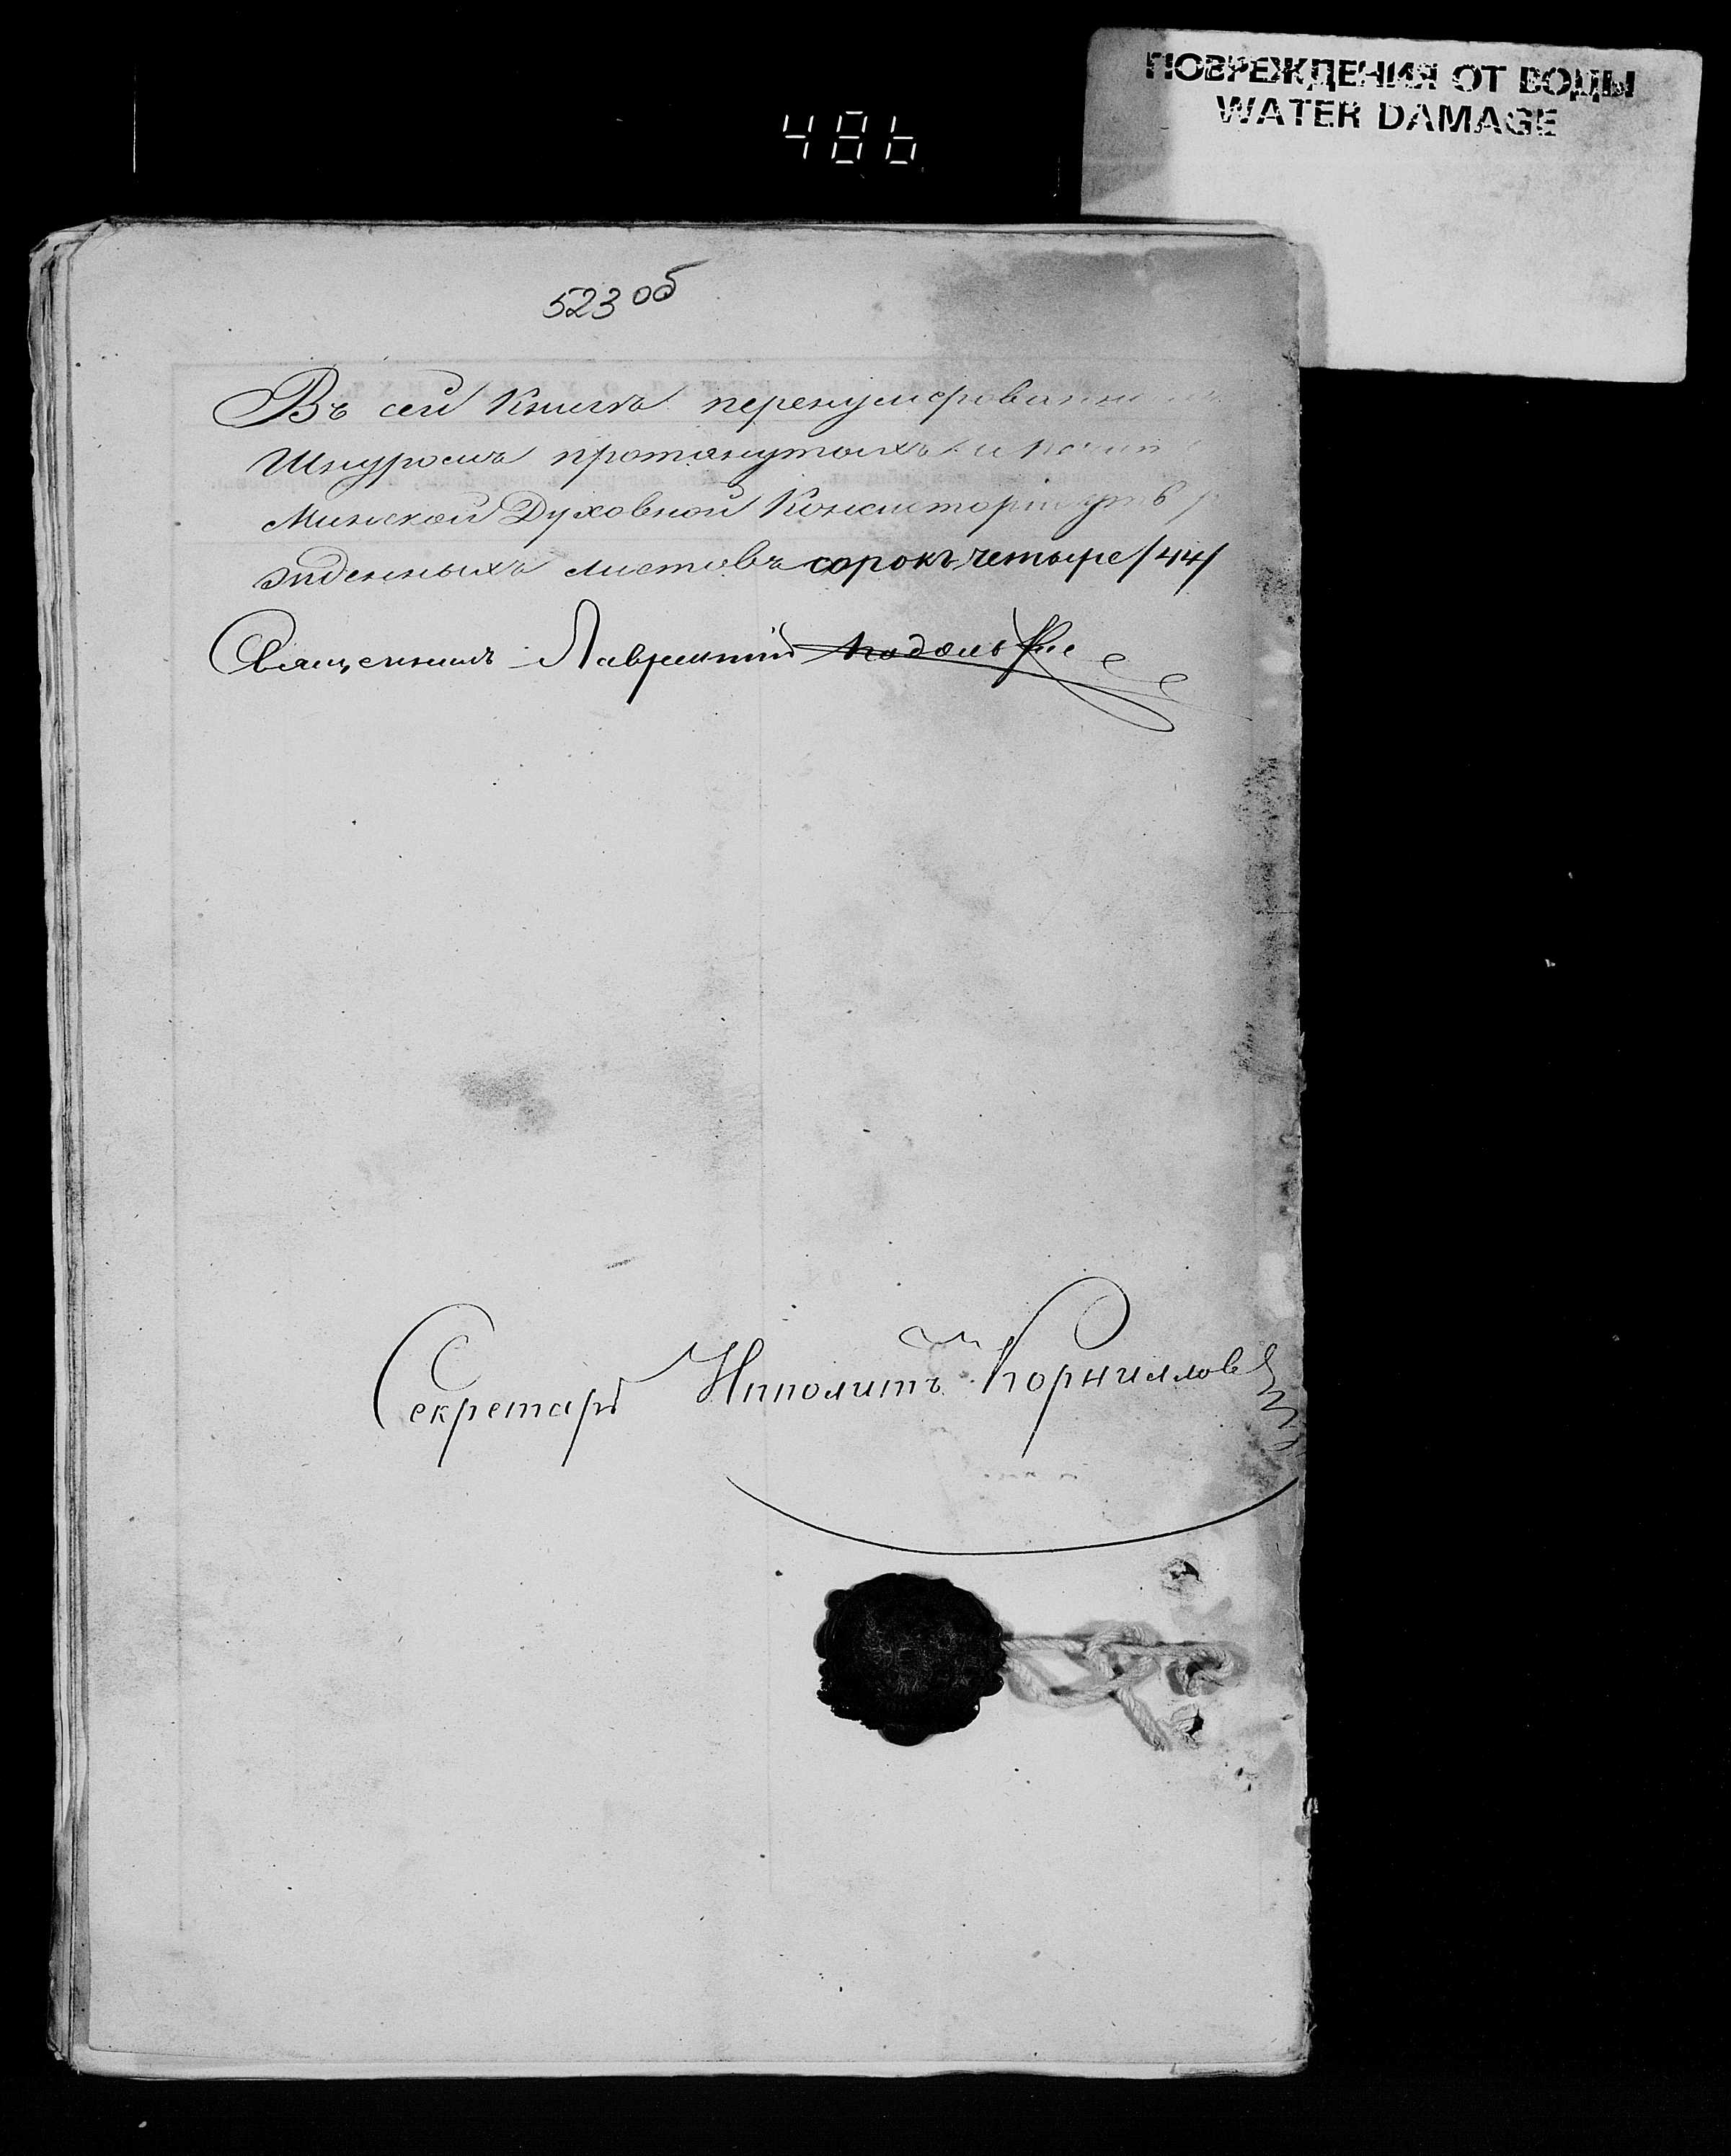 ПОВРЕЖДЕНИЯ ОТ ВОДЫ
WATER DAMAGE
486
523 об
Въ сей Книгѣ перенумерованны
Шнуромъ протянутыхъ и
Минской Духовной Консисторіи утвер
жденныхъ листовъ сорокъ четыре /44/
Священникъ Лаврентій
Секретарь Ипполитъ Корниллов